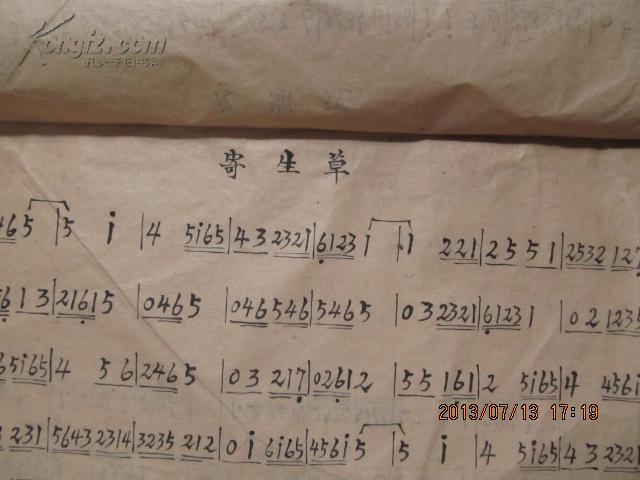 Kongfz.com
孔夫子旧书网
寄生草
465 | 5 i | 4 5i65 | 43 2321 | 6123 1 | 1 221 | 25 51 | 2532 127
61 3 | 2161 5 | 0465 | 046 546 | 5465 | 03 2321 | 6123 1 | 02 1235
5i65 | 4 56 | 2465 | 03 217 | 0261 2 | 55 161 | 2 5i65 | 4 456i
231 | 5643 2314 | 3235 212 | 0i 6i65 | 456i 5 | 5 i | 4 5i65 | 43 2321
2013/07/13 17:19